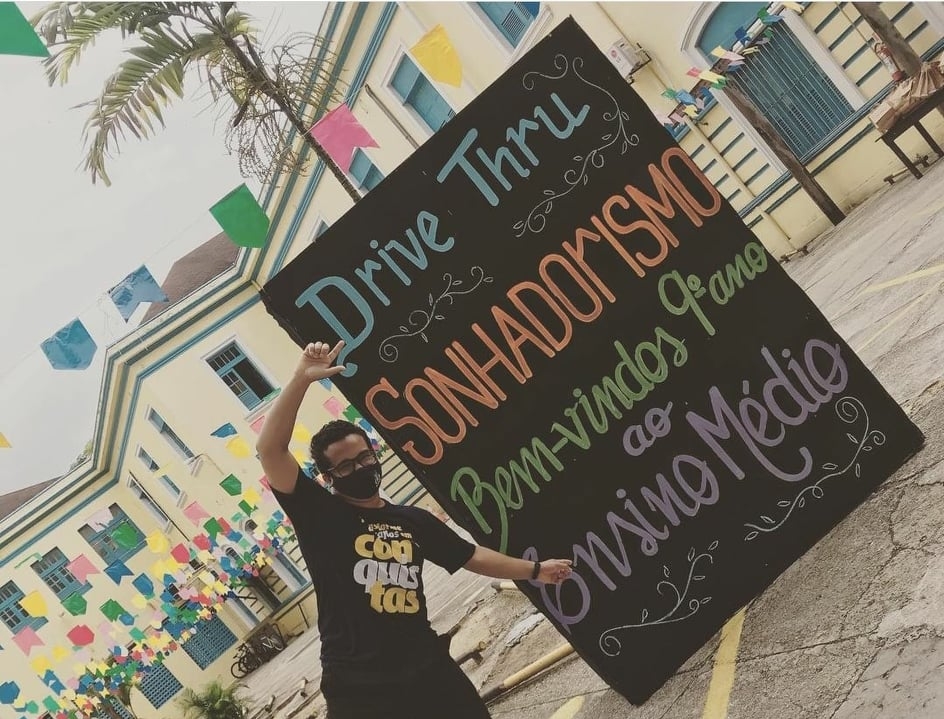 Drive Thru
SONHADORISMO
Bem-vindos 9º ano
ao
Ensino Médio
con
quis
tas